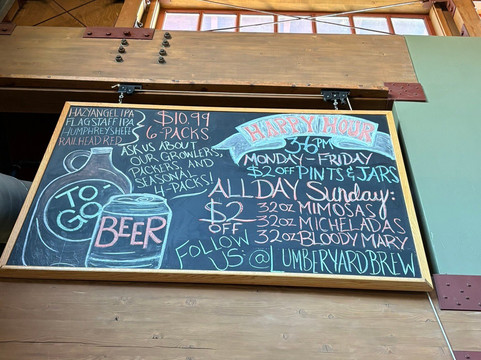 HAZYANGEL IPA
FLAGSTAFF IPA
HUMPHREYSHEFE
RAILHEAD RED
$10.99
6-PACKS
ASK US ABOUT
OUR GROWLERS,
PACKERS, AND
SEASONAL
4-PACKS!
TO
GO
BEER
HAPPY HOUR
3-6PM
MONDAY - FRIDAY
$2 OFF PINTS & JARS
ALL DAY Sunday:
$2
OFF
32oz MIMOSAS
32oz MICHELADAS
32oz BLOODY MARY
FOLLOW
US @LUMBERYARDBREW